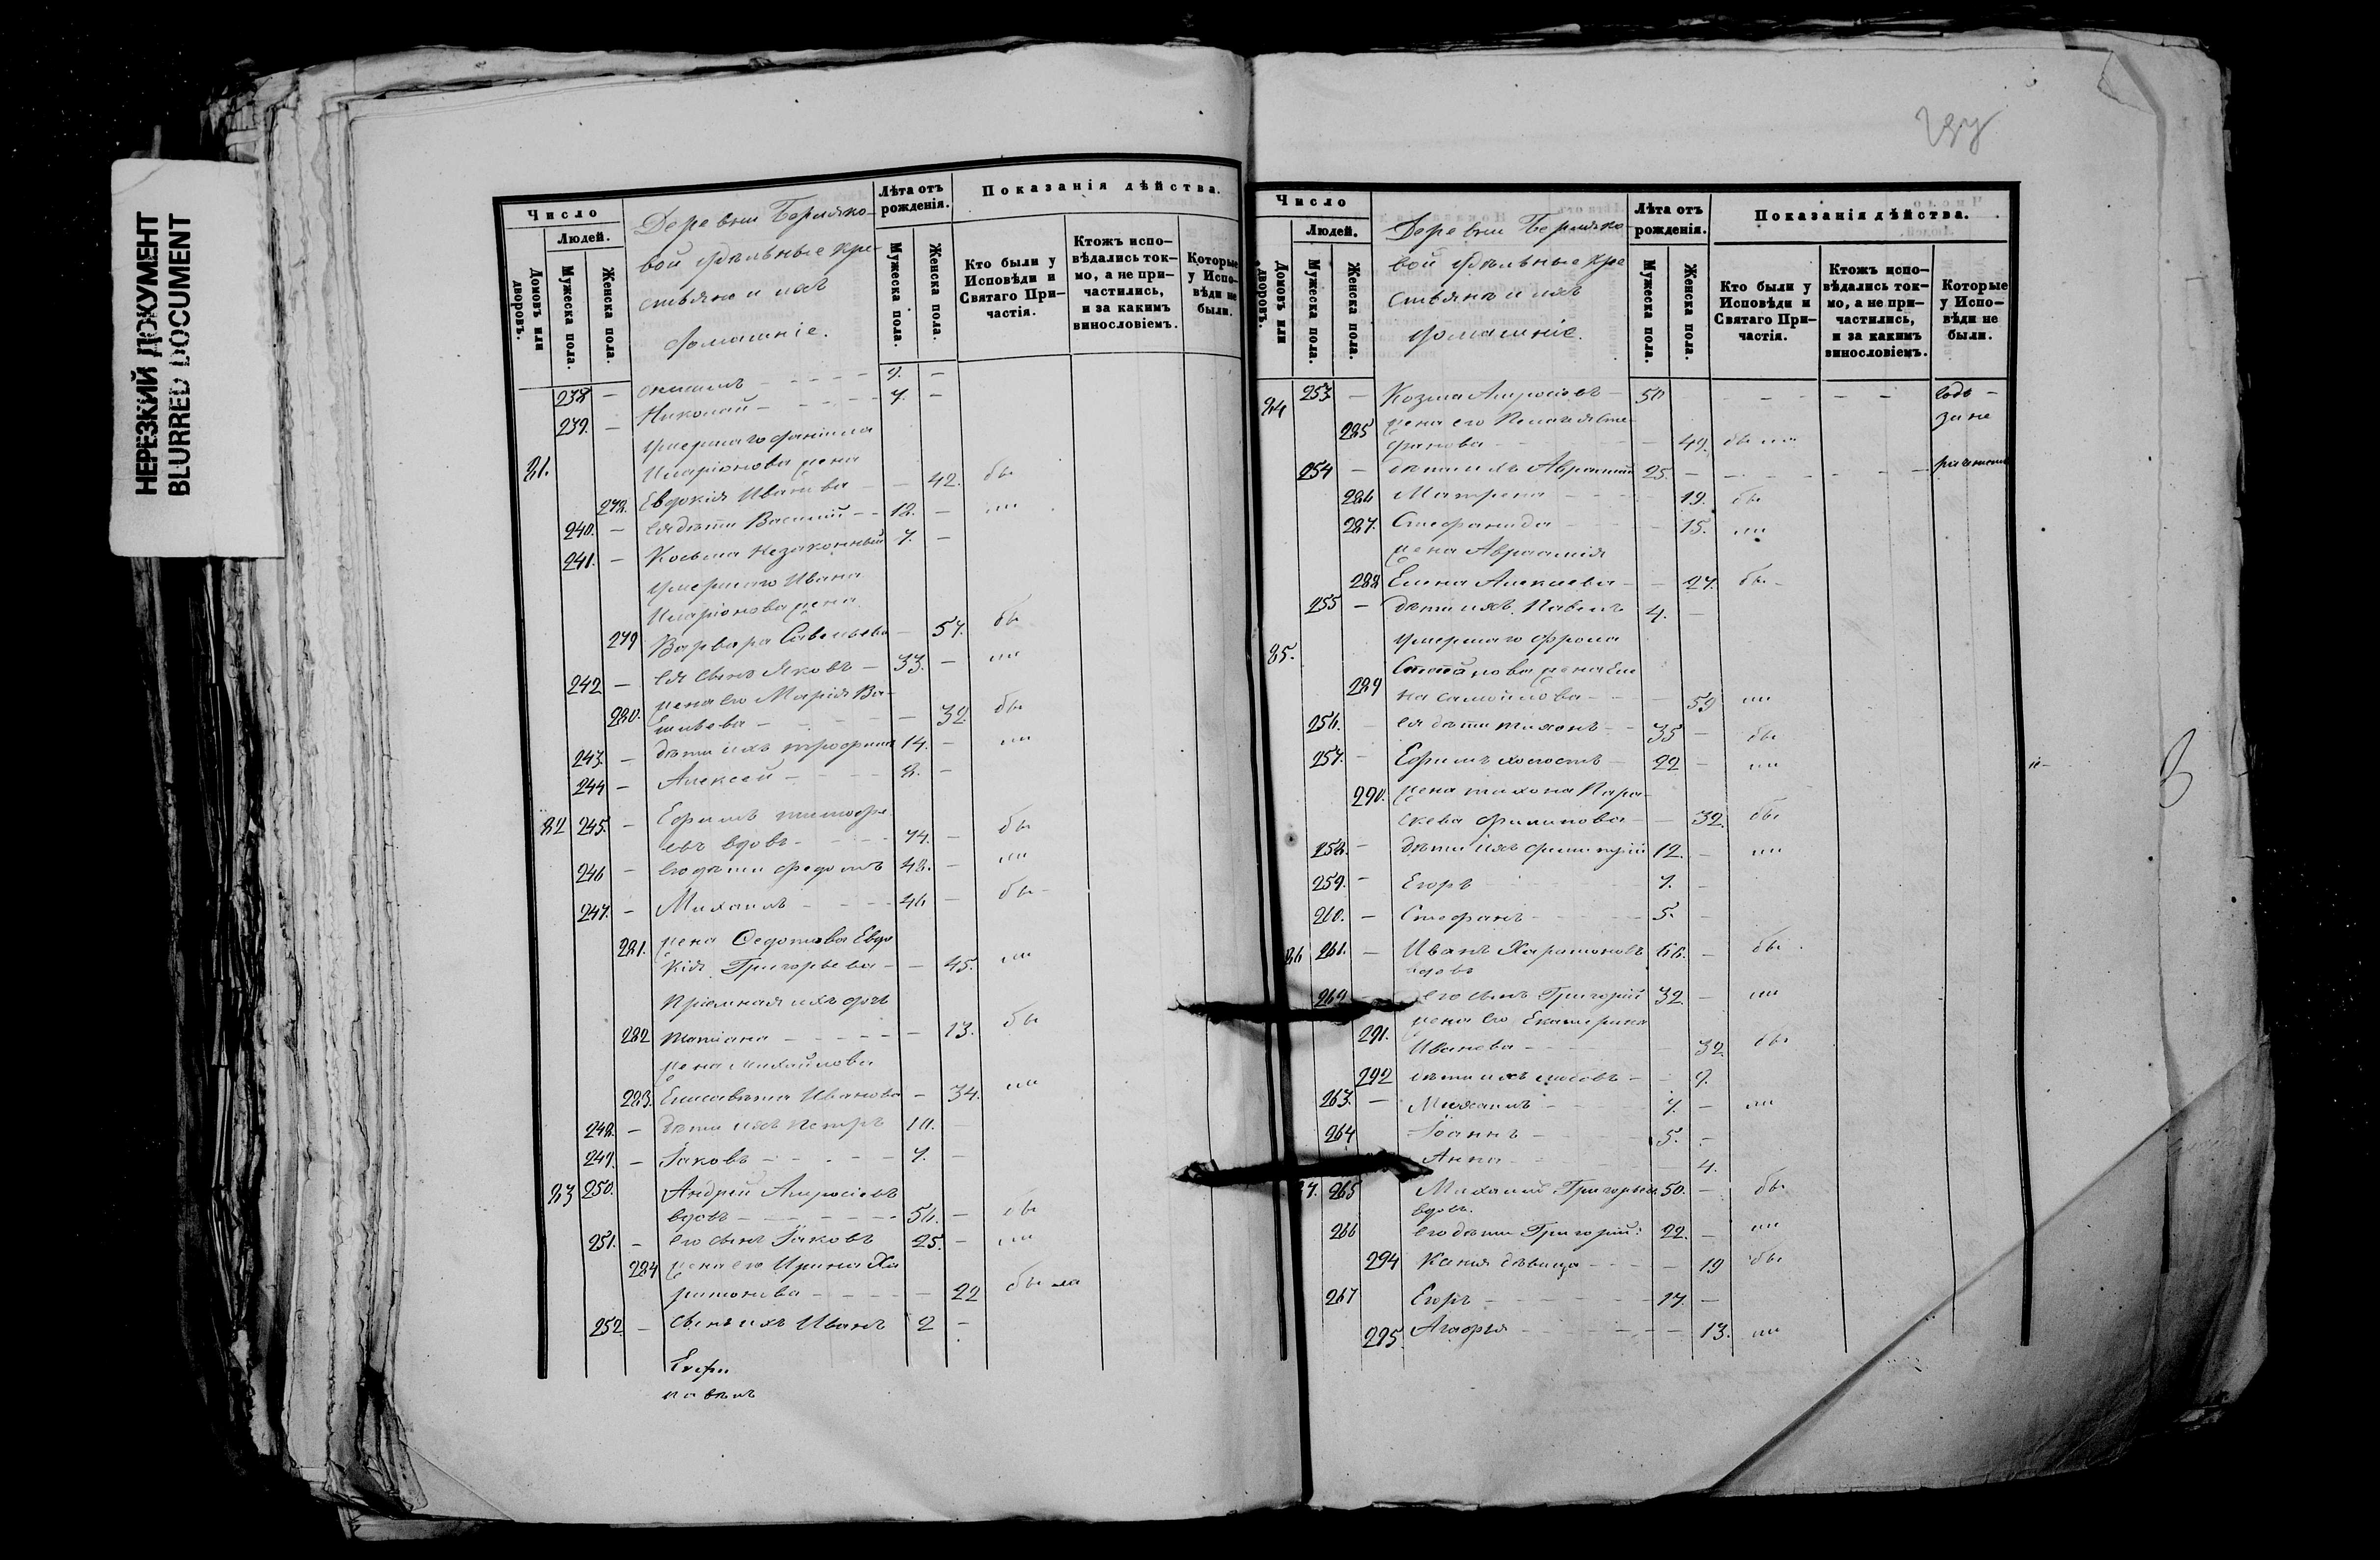 НЕРЕЗКИЙ ДОКУМЕНТ
BLURRED DOCUMENT
Число
Людей.
Домовъ или дворовъ.
Мужеска пола.
Женска пола.
Деревни
вой удѣльные кре-
стьяне и ихъ
домашніе.
Лѣта отъ рожденія.
Мужеска пола.
Женска пола.
Показанія дѣйства.
Кто были у Исповѣди и Святаго При-частія.
Ктожъ испо-вѣдались ток-мо, а не при-частились, и за какимъ винословіемъ.
Которые у Испо-вѣди не были.
238 — 9. —
239. — Николай — 7. —
умершаго
81. Иларіонова жена
278. Евдокія Иванова — 42. бы
240. — ея дѣти Василій — 12. — ли
241. — Косьма незаконный 7. —
умершаго Ивана
Иларіонова жена
279 Варвара Савельева — 57. бы
242 — ея сынъ Яковъ — 33. — ли
280. жена его Марія Ва-
сильева — 32. бы
243. — дѣти ихъ Трофимъ 14. — ли
244 — Алексей — 8. —
82 245. — Ефимъ Тимофе
евъ вдовъ — 74. — бы
246 — его дѣти Федотъ 48. — ли
247. — Михаилъ — 46 — бы
281. жена Федотова Евдо
кія Григорьева — 45. ли
Пріемная ихъ дочь
282 Татіана — 13. бы
жена Михайлова
283. Елисавета Иванова — 34. ли
248. — дѣти ихъ Петръ 10. —
249. — Іаковъ — 7. —
83 250. Андрей Амросіевъ
вдовъ — 56. — бы
251. — его сынъ Іаковъ 25. — ли
284 жена его Ирина Ха
ритонова — 22 была
252 — сынъ ихъ Иванъ 2 —
Число
Людей.
Домовъ или дворовъ.
Мужеска пола.
Женска пола.
Деревни
вой удѣльные кре
стьянъ и ихъ
домашніе.
Лѣта отъ рожденія.
Мужеска пола.
Женска пола.
Показанія дѣйства.
Кто были у Исповѣди и Святаго При-частія.
Ктожъ испо-вѣдались ток-мо, а не при-частились, и за какимъ винословіемъ.
Которые у Испо-вѣди не были.
84 253 — Козма Амросіевъ — 50
285 жена его Пелагея Сте-
фанова — 49. была
за не
254 — дѣти ихъ Авраамій 25. —
286 Матрена — 19. бы
287. Стефанида — 15. ли
жена Авраамія
288 Елена Алексиева — 27. бы
255 — дѣти ихъ Павелъ 4. —
85. умершаго Фрола
289 Степанова жена Еле
на Самойлова — 59 ли
256. — ея дѣти Тихонъ — 35 — бы
257. — Ефимъ холостъ — 22 — ли
290. жена Тихона Пара-
скева Филипова — 32. бы
258. — дѣти ихъ Димитрій 12. — ли
259. — Егоръ 7. —
260. — Стефанъ — 5. —
86 261. — Иванъ Харитоновъ 66. — бы
вдовъ
262 его сынъ Григорій 32 — ли
291. жена его Екатерина
Иванова — 32 бы
292 дѣти ихъ Любовь — 9.
263. — Михаилъ — 7. — ли
264 Іоаннъ — 5. —
Анна — 4.
87. 265 Михаилъ Григорьев 50. — бы
вдовъ.
266 его дѣти Григорій 22. — ли
294 Ксенія дѣвица — 19 бы
267 Егоръ — 17. —
295. Агафья — 13. ли